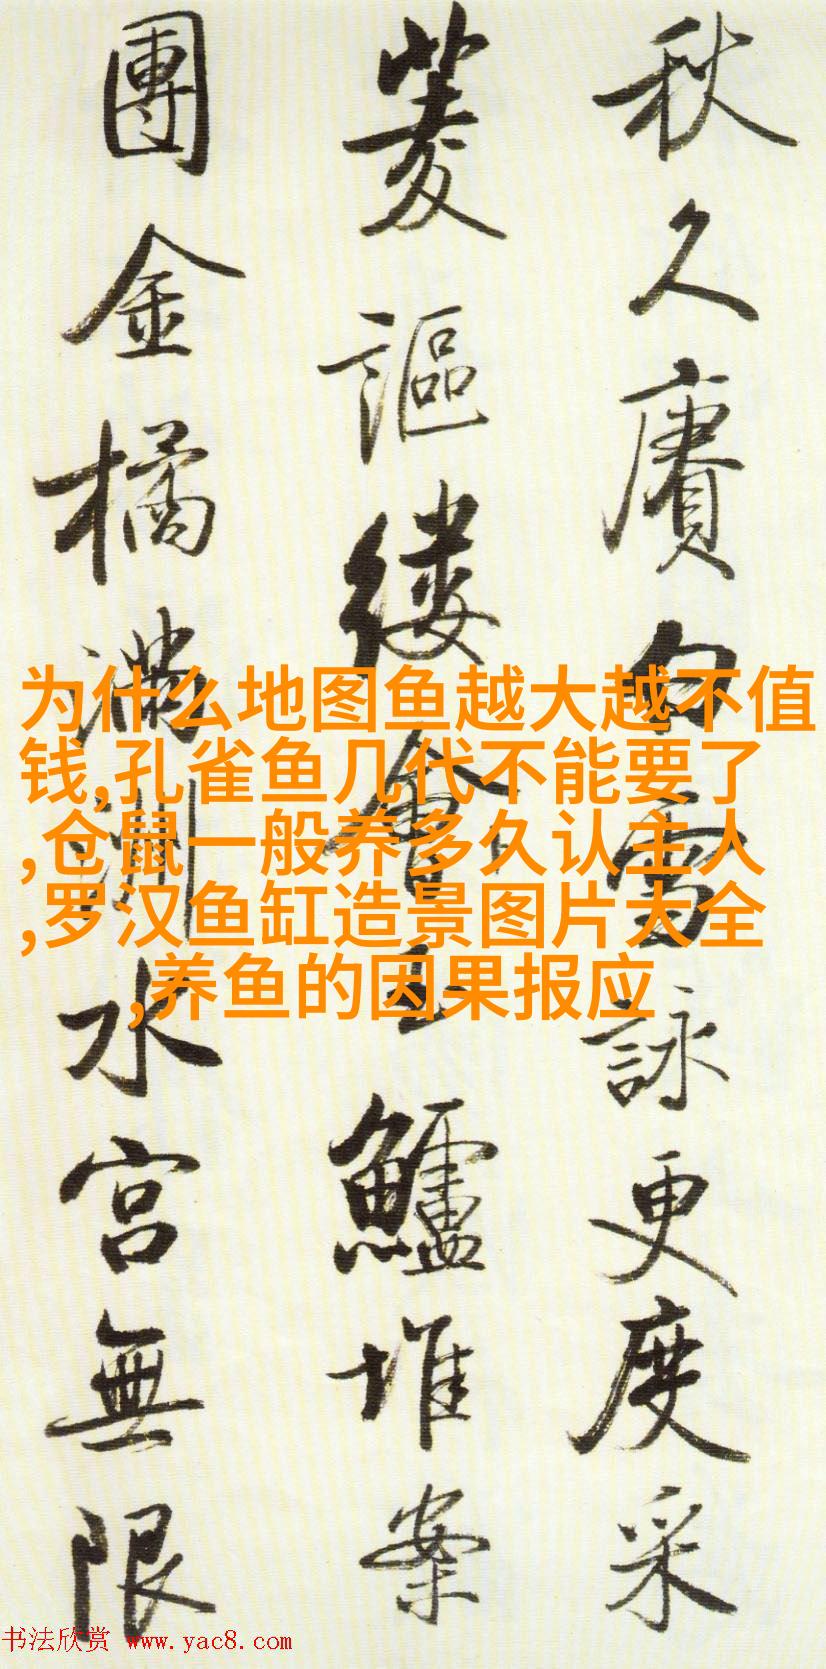 秋久賡白雪詠更度采
菱謳縷會玉鱸堆案
團金橘滿洲水宮無限
为什么地图鱼越大越不值
钱,孔雀鱼几代不能要了
,仓鼠一般养多久认主人
,罗汉鱼缸造景图片大全
,养鱼的因果报应
书法欣赏 www.yac8.com